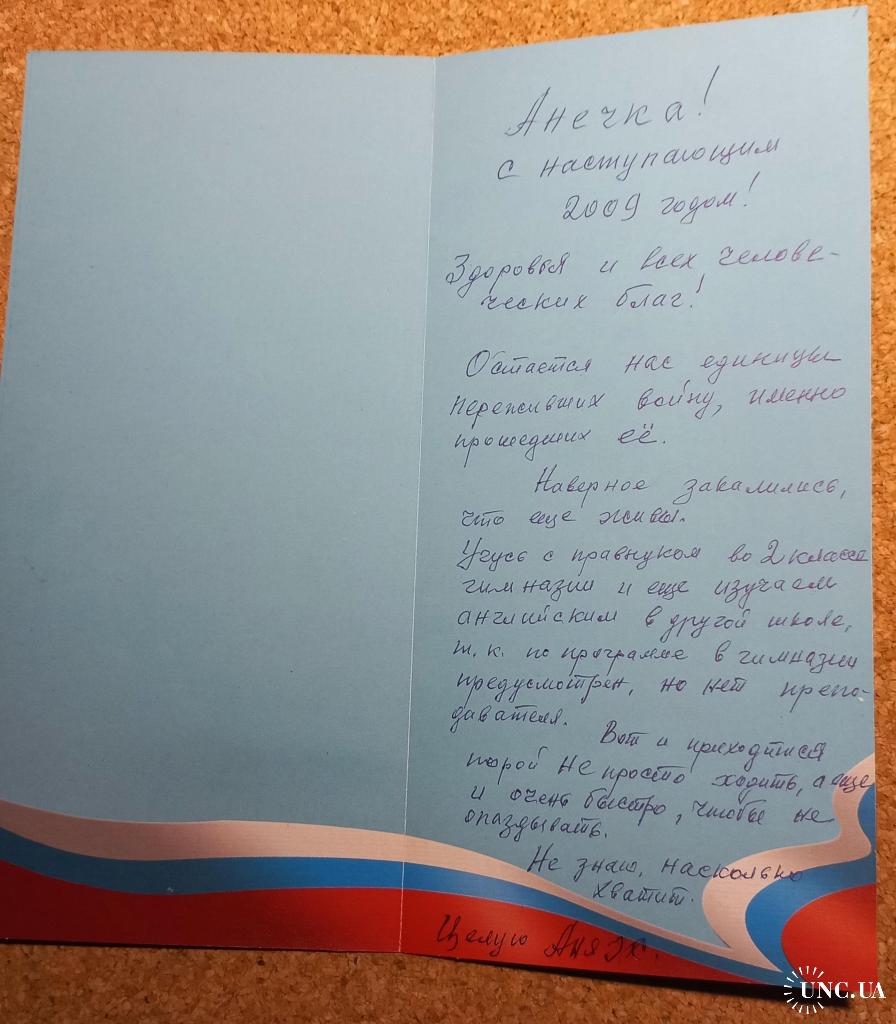 Анечка!
с наступающим
2009 годом!
Здоровья и всех челове-
ческих благ!
Остается нас единицы
переживших войну, именно
прошедших её.
Наверное закалились,
что еще живы.
Учусь с правнуком во 2 классе
гимназии и еще изучаем
английским в другой школе,
т.к. по программе в гимназии
предусмотрен, но нет препо-
давателя.
Вот и приходится
порой не просто ходить, а еще
и очень быстро, чтобы не
опаздывать.
Не знаю, насколько
хватит.
Целую Аня
UNC.UA